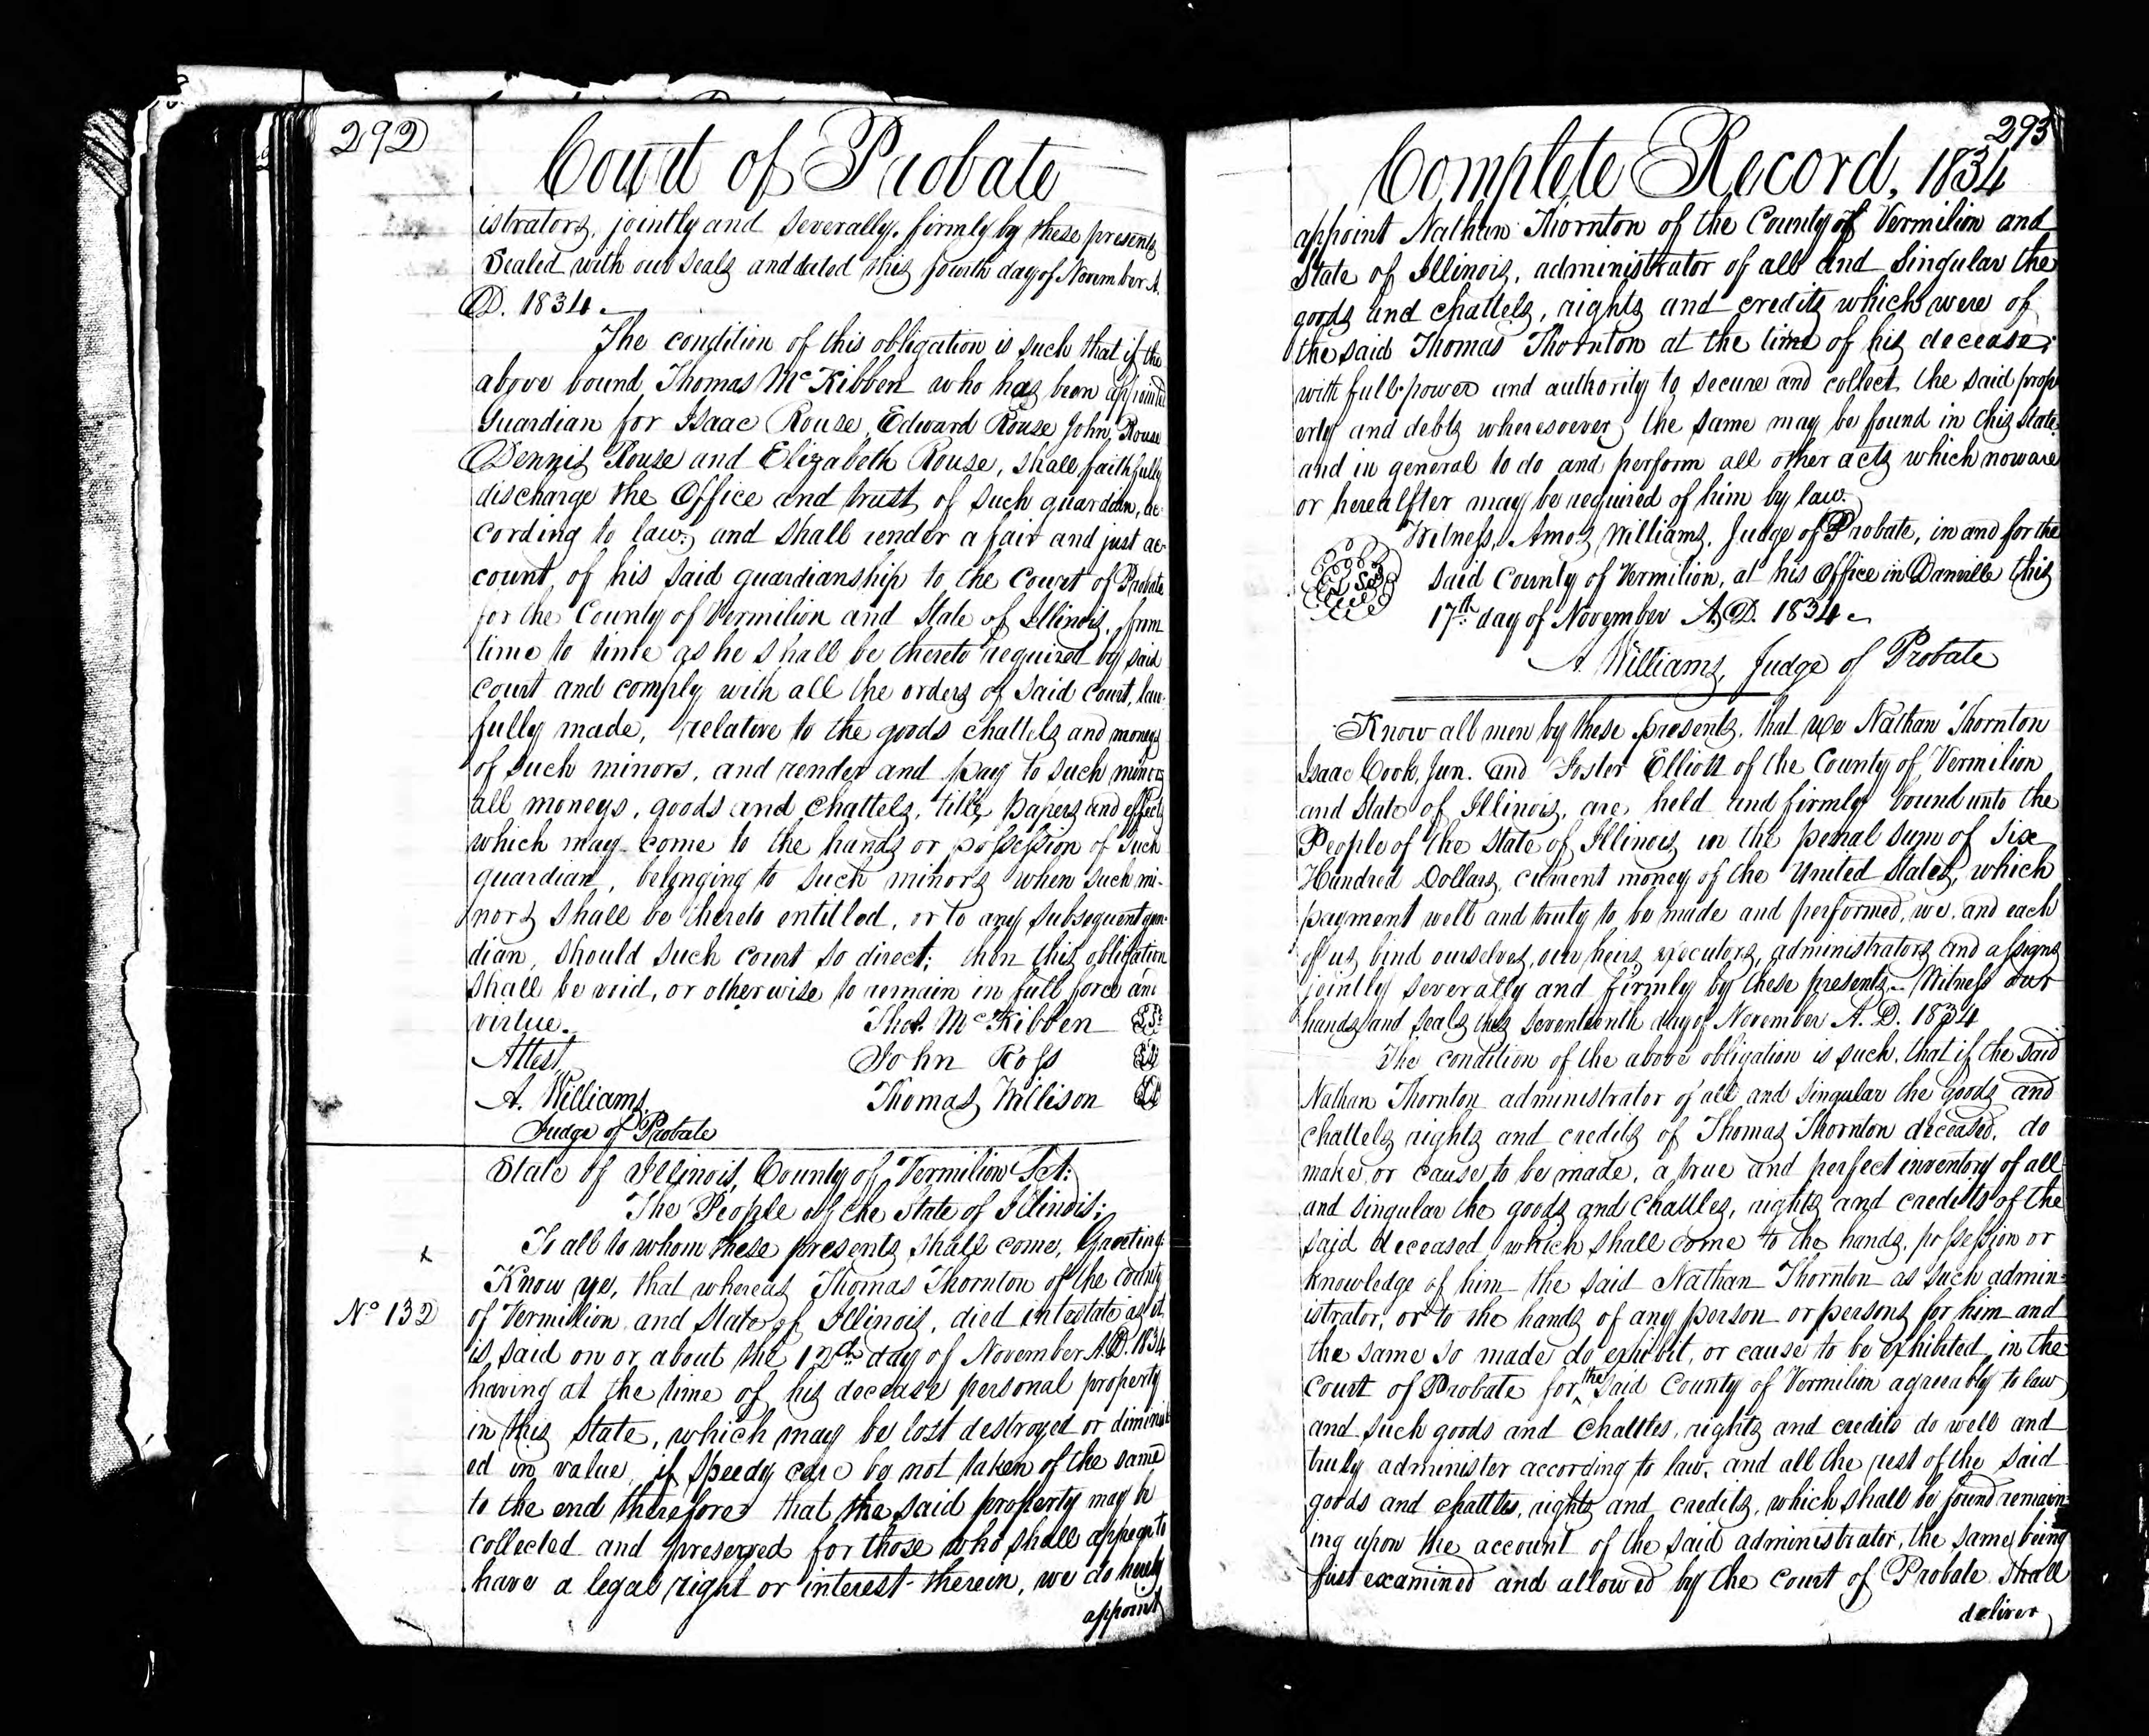 292
Court of Probate
istrators, jointly and severally. firmly by these presents
Sealed with our seals and dated this fourth day of November A.
D. 1834.
The condition of this obligation is such that if the
above bound Thomas McKibben who has been appointed
Guardian for Isaac Rouse, Edward Rouse John Rouse
Dennis Rouse and Elizabeth Rouse, shall faithfully
discharge the Office and trust of such guardian, ac-
cording to law; and shall render a fair and just ac-
count, of his said guardianship to the Court of Probate
for the County of Vermilion and State of Illinois, from
time to time as he shall be thereto required by said
Court and comply with all the orders of said Court, law-
fully made, relative to the goods chattels and moneys
of such minors, and render and pay to such minors
all moneys, goods and chattels, title papers and effects
which may come to the hands or possession of such
guardian, belonging to such minors when such mi-
nors shall be thereto entitled, or to any subsequent guar-
dian, should such court so direct; then this obligation
shall be void, or otherwise to remain in full force and
virtue. Thos. McKibben
Attest, John Ross
A. Williams Thomas Willison
Judge of Probate
State of Illinois, County of Vermilion Sct:
The People of the State of Illinois;
To all to whom these presents shall come, Greeting.
x
Know ye, that whereas Thomas Thornton of the county
No 132 of Vermilion and State of Illinois, died intestate as it
is said on or about the 12th day of November A.D. 1834
having at the time of his decease personal property
in this State, which may be lost destroyed or diminish
ed in value, if speedy care be not taken of the same
to the end therefore that the said property may be
collected and preserved for those who shall appear to
have a legal right or interest therein, we do hereby
appoint
293
Complete Record, 1834
appoint Nathan Thornton of the County of Vermilion and
State of Illinois, administrator of all and Singular the
goods and chattels, rights and credits which were of
the said Thomas Thornton at the time of his decease;
with full power and authority to secure and collect the said prop
erty and debts wheresoever the same may be found in this state
and in general to do and perform all other acts which now are
or herealfter may be required of him by law.
Witness, Amos Williams, Judge of Probate, in and for the
said County of Vermilion, at his Office in Danville this
17th day of November A.D. 1834
A. Williams, Judge of Probate
Know all men by these presents, that we Nathan Thornton
Isaac Cook, Jun. and Foster Elliott of the County of Vermilion
and State of Illinois, are held and firmly bound unto the
People of the State of Illinois in the penal sum of six
Hundred Dollars, current money of the United States, which
payment well and truly to be made and performed, we, and each
of us, bind ourselves, our heirs executors, administrators and assigns
jointly severally and firmly by these presents. Witness our
hands and seals this seventeenth day of November A.D. 1834
The condition of the above obligation is such, that if the said
Nathan Thornton administrator of all and singular the goods and
chattels rights and credits of Thomas Thornton deceased, do
make or cause to be made, a true and perfect inventory of all
and singular the goods and chattles, rights and credits of the
said deceased which shall come to the hands, possession or
knowledge of him the said Nathan Thornton as such admin=
istrator, or to the hands of any person or persons for him and
the same so made do exhibit, or cause to be exhibited, in the
Court of Probate for the said County of Vermilion agreeably to law
and such goods and chattles, rights and credits do well and
truly administer according to law, and all the rest of the said
goods and chattles, rights and credits, which shall be found remain
ing upon the account of the said administrator, the same being
first examined and allowed by the Court of Probate shall
deliver